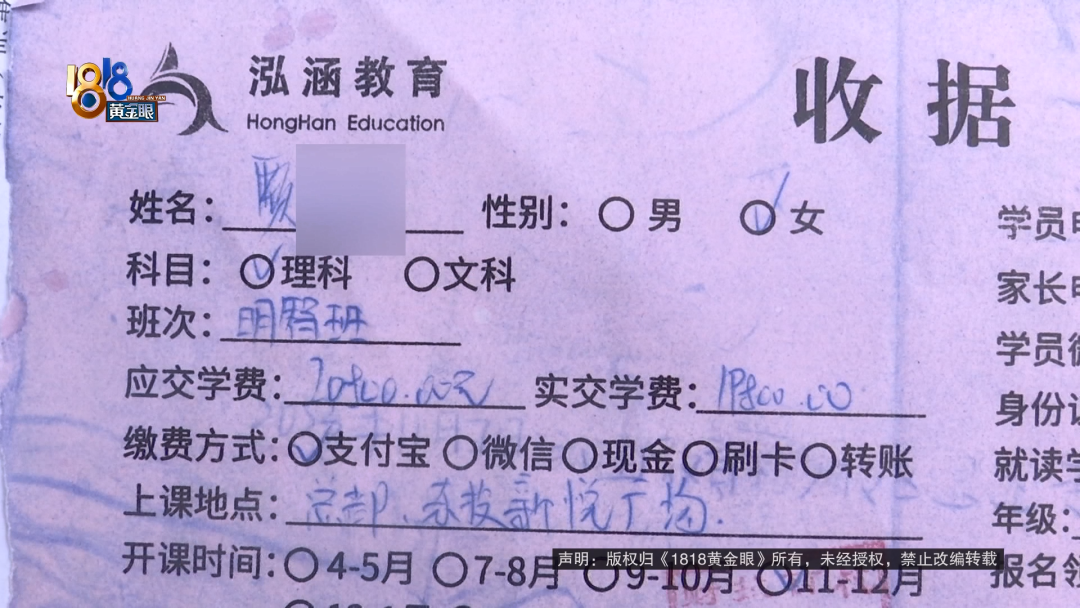 1818
HUANG JIN YAN
黄金眼
泓涵教育
HongHan Education
收据
姓名： 顾 性别： 男 女
学员
科目： 理科 文科
家长
班次： 明督班
学员
应交学费： 实交学费：
身份
缴费方式： 支付宝 微信 现金 刷卡 转账
就读
上课地点： 总部
年级：
开课时间： 4-5月 7-8月 9-10月 11-12月
报名
声明：版权归《1818黄金眼》所有，未经授权，禁止改编转载